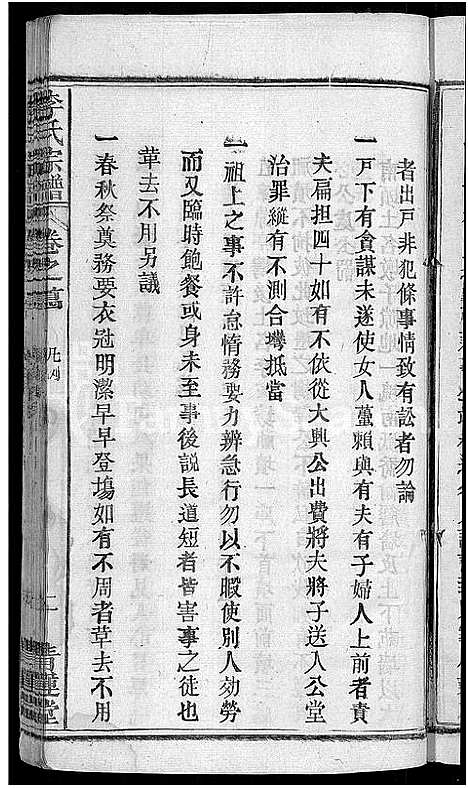 者出戸非犯條事情致有訟者勿論
一戸下有貪謀未遂使女人䔇賴與有夫有子婦人上前者責
夫扁担四十如有不依從大興公出費將夫將子送人公堂
治罪縱有不測合灣抵當
一祖上之事不許怠惰務要力辨急行勿以不暇使別人効勞
而又臨時飽餐或身未至事後説長道短者皆害事之徒也
革去不用另議
一春秋祭奠務要衣冠明潔早早登塲如有不周者草去不用
李氏宗譜
卷之一
青蓮堂